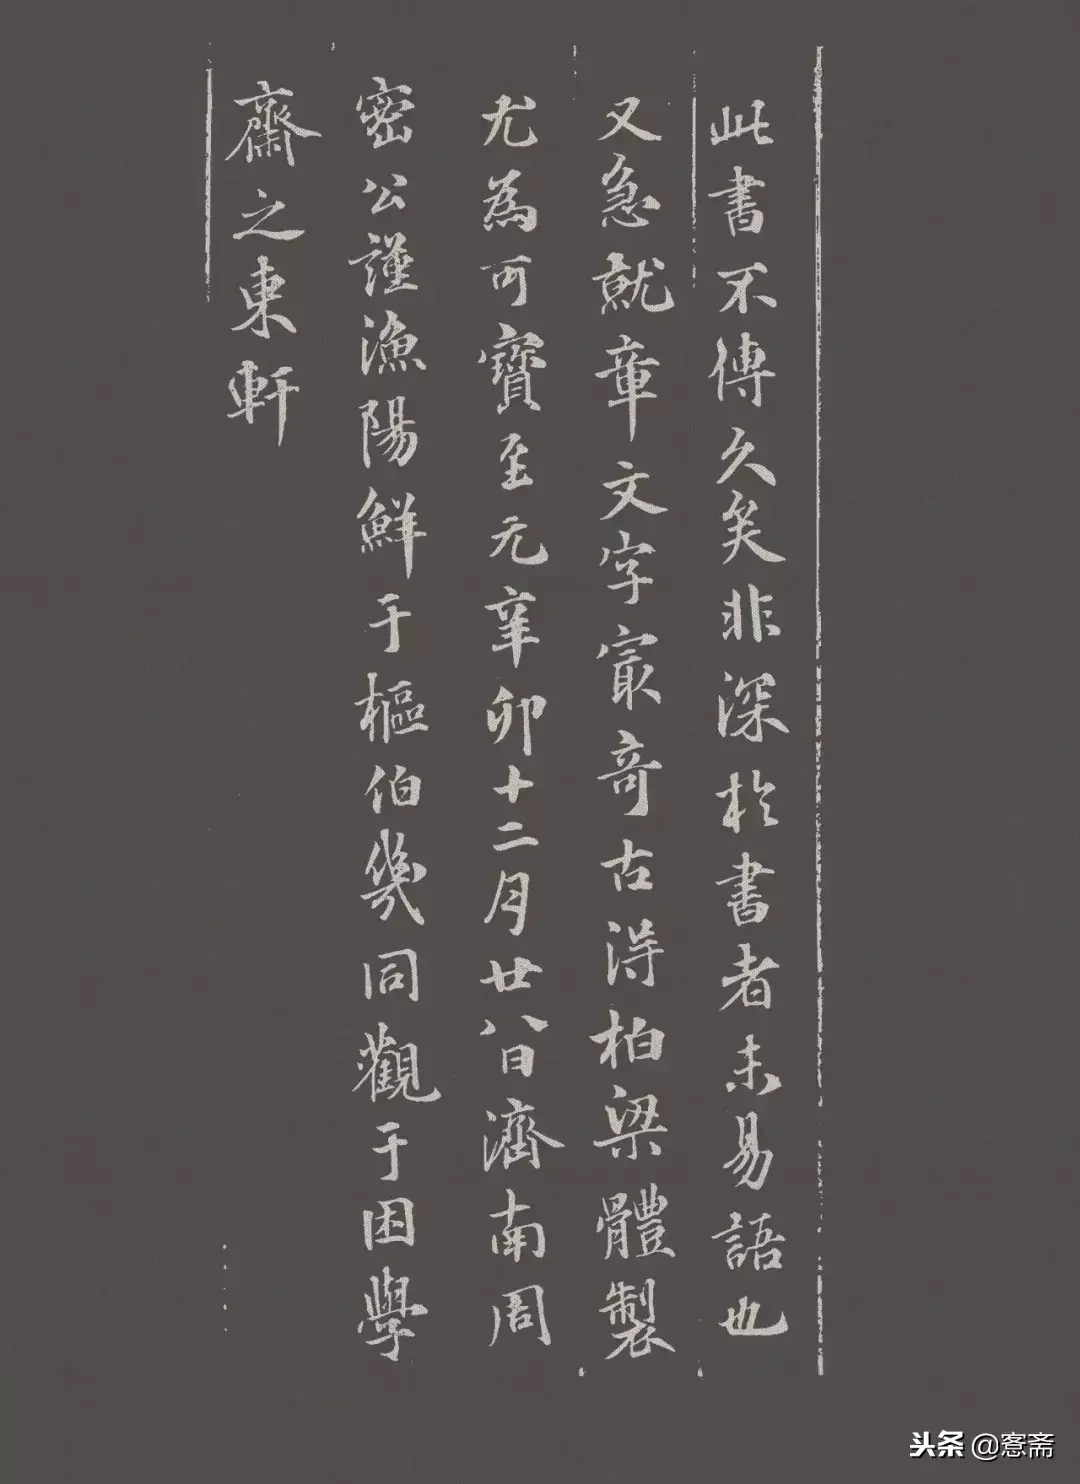 此書不傳久矣非深於書者未易語也
又急就章文字㝡奇古得柏梁體製
尤為可寶至元辛卯十二月廿八日濟南周
密公謹漁陽鮮于樞伯幾同觀于困學
齋之東軒
头条 @窓斋